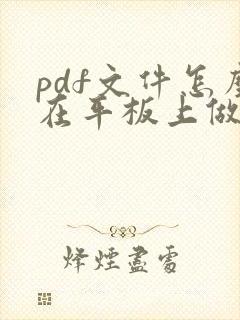 pdf文件怎
在平板上做
烽煙盡處